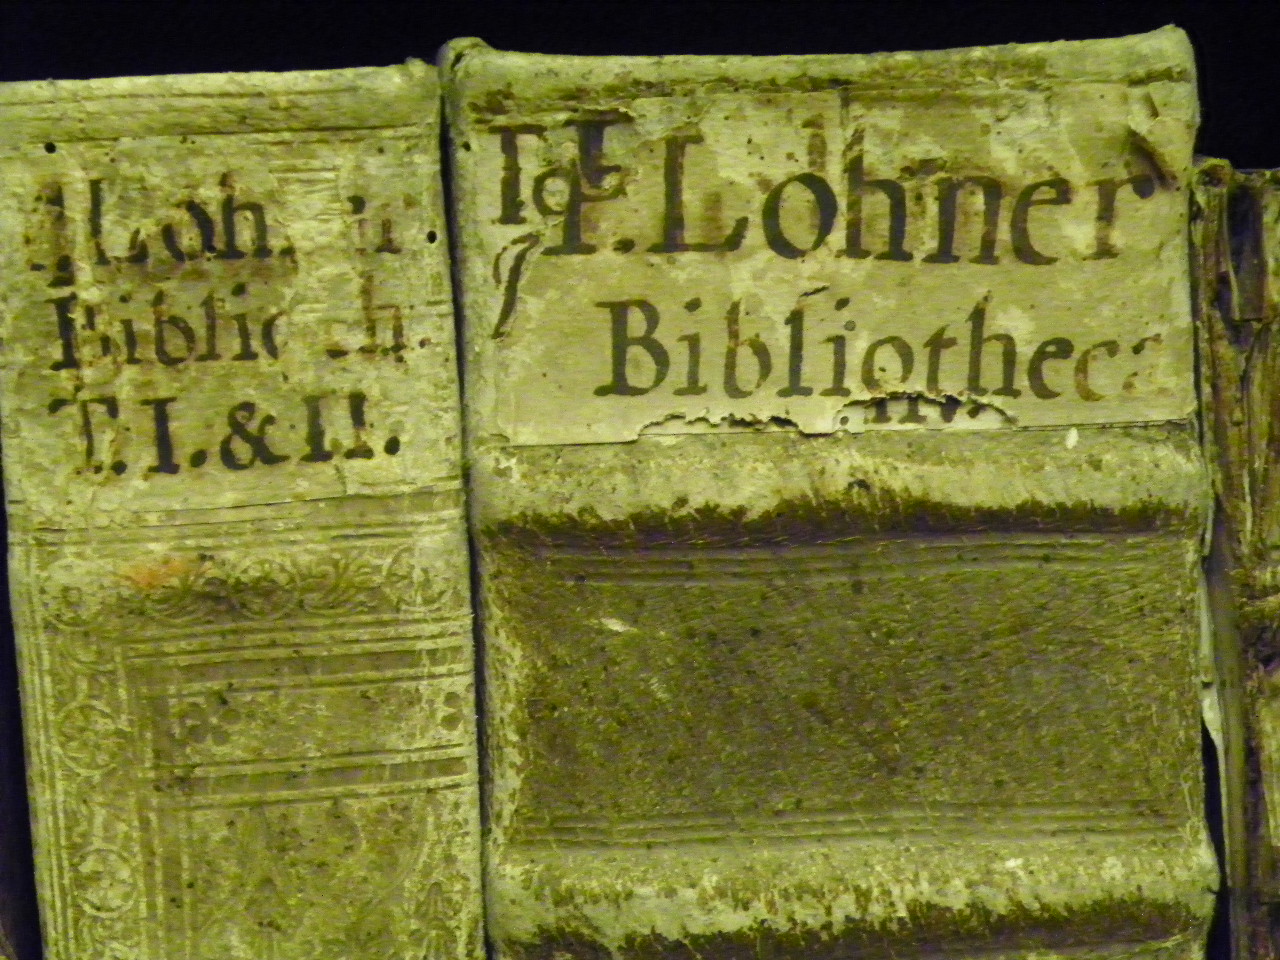 Loh
Biblio
T. I. & II.
Lohner
Bibliotheca